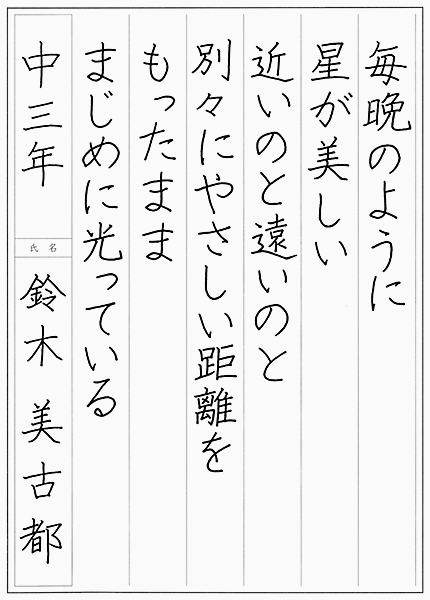 毎晩のように
星が美しい
近いのと遠いのと
別々にやさしい距離を
もったまま
まじめに光っている
中三年
氏名
鈴木美古都